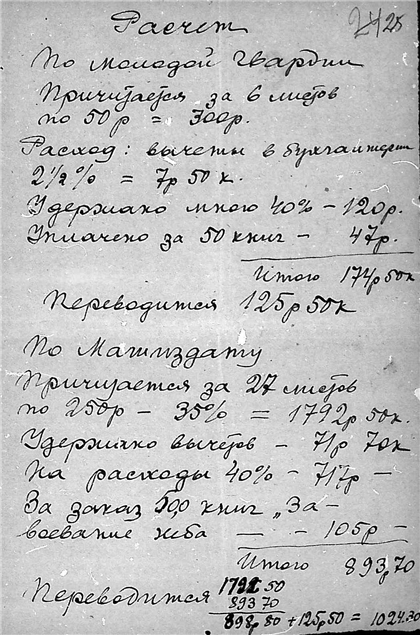 25
Расчет
По молодой гвардии
Причитается за 6 листов
по 50р = 300р.
Расход: вычеты в бухгалтерии
2 1/2 % = 7р 50 к.
Удержано мною 40% – 120р.
Уплачено за 50 книг – 47р.
Итого 174р 50к
Переводится 125р 50к
По Машиздату.
Причитается за 27 листов
по 250р – 35% = 1792р 50к.
Удержано вычетов – 71р 70к
На расходы 40% – 717р –
За заказ 500 книг „За-
воевание неба – – 105р –
Итого 893р 70
1792 50
Переводится 893 70
898р 80 + 125р 50 = 1024.30